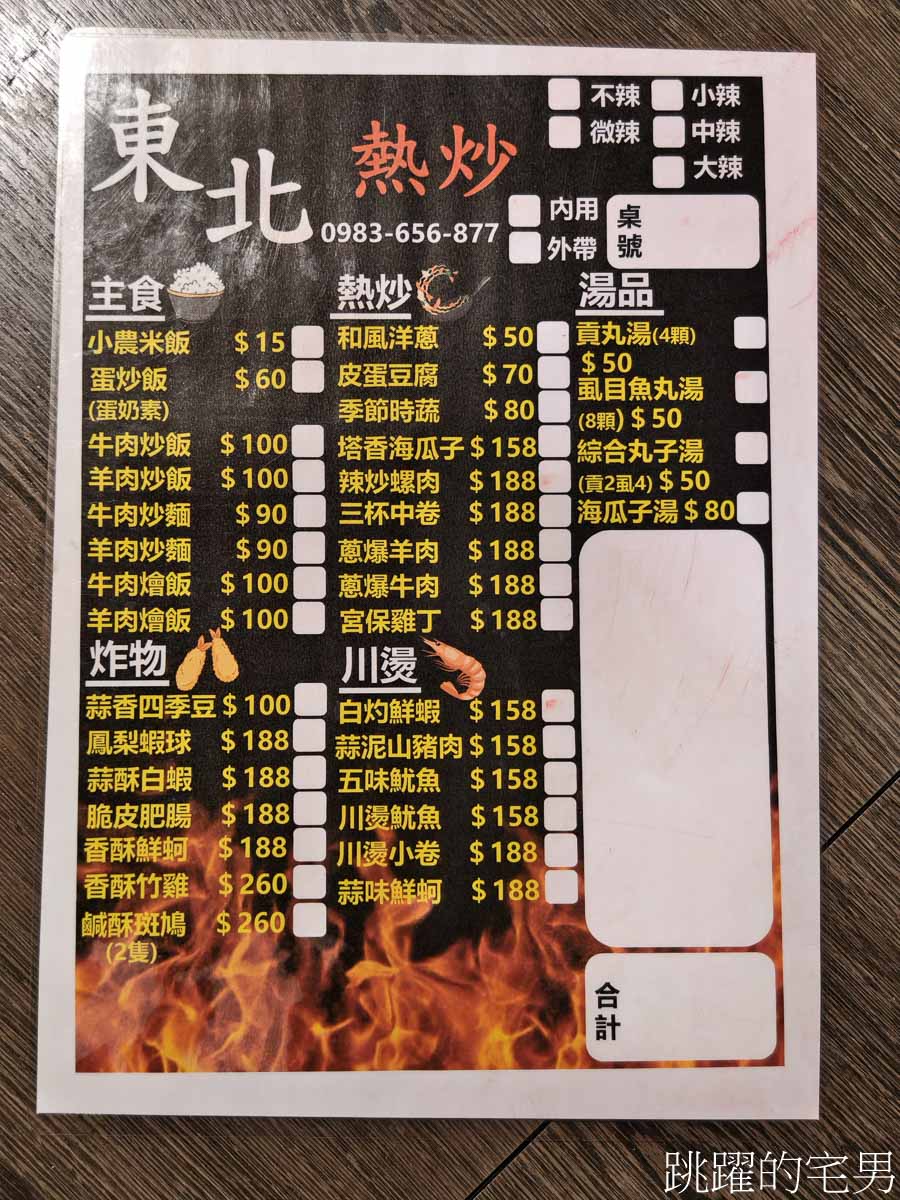 東北 熱炒
0983-656-877
不辣 小辣
微辣 中辣
大辣
內用
外帶
桌號
主食
小農米飯 $15
蛋炒飯 $60
(蛋奶素)
牛肉炒飯 $100
羊肉炒飯 $100
牛肉炒麵 $90
羊肉炒麵 $90
牛肉燴飯 $100
羊肉燴飯 $100
炸物
蒜香四季豆 $100
鳳梨蝦球 $188
蒜酥白蝦 $188
脆皮肥腸 $188
香酥鮮蚵 $188
香酥竹雞 $260
鹹酥斑鳩 $260
(2隻)
熱炒
和風洋蔥 $50
皮蛋豆腐 $70
季節時蔬 $80
塔香海瓜子 $158
辣炒螺肉 $188
三杯中卷 $188
蔥爆羊肉 $188
蔥爆牛肉 $188
宮保雞丁 $188
川燙
白灼鮮蝦 $158
蒜泥山豬肉 $158
五味魷魚 $158
川燙魷魚 $158
川燙小卷 $188
蒜味鮮蚵 $188
湯品
貢丸湯(4顆)
$50
虱目魚丸湯
(8顆) $50
綜合丸子湯
(貢2虱4) $50
海瓜子湯 $80
合計
跳躍的宅男